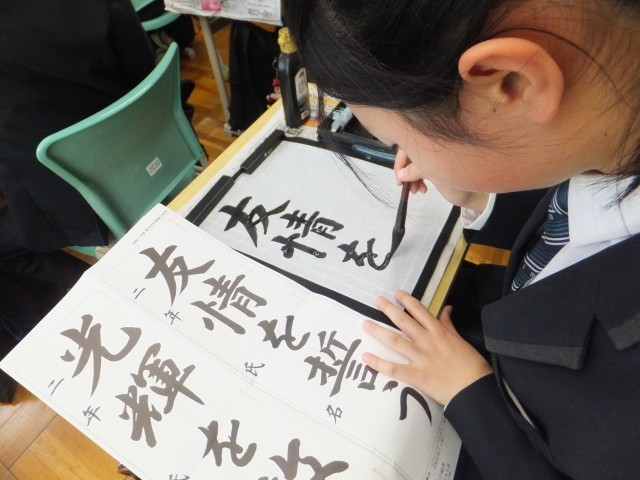 友情を
友情を誓う
二年 氏名
光輝を
二年 氏